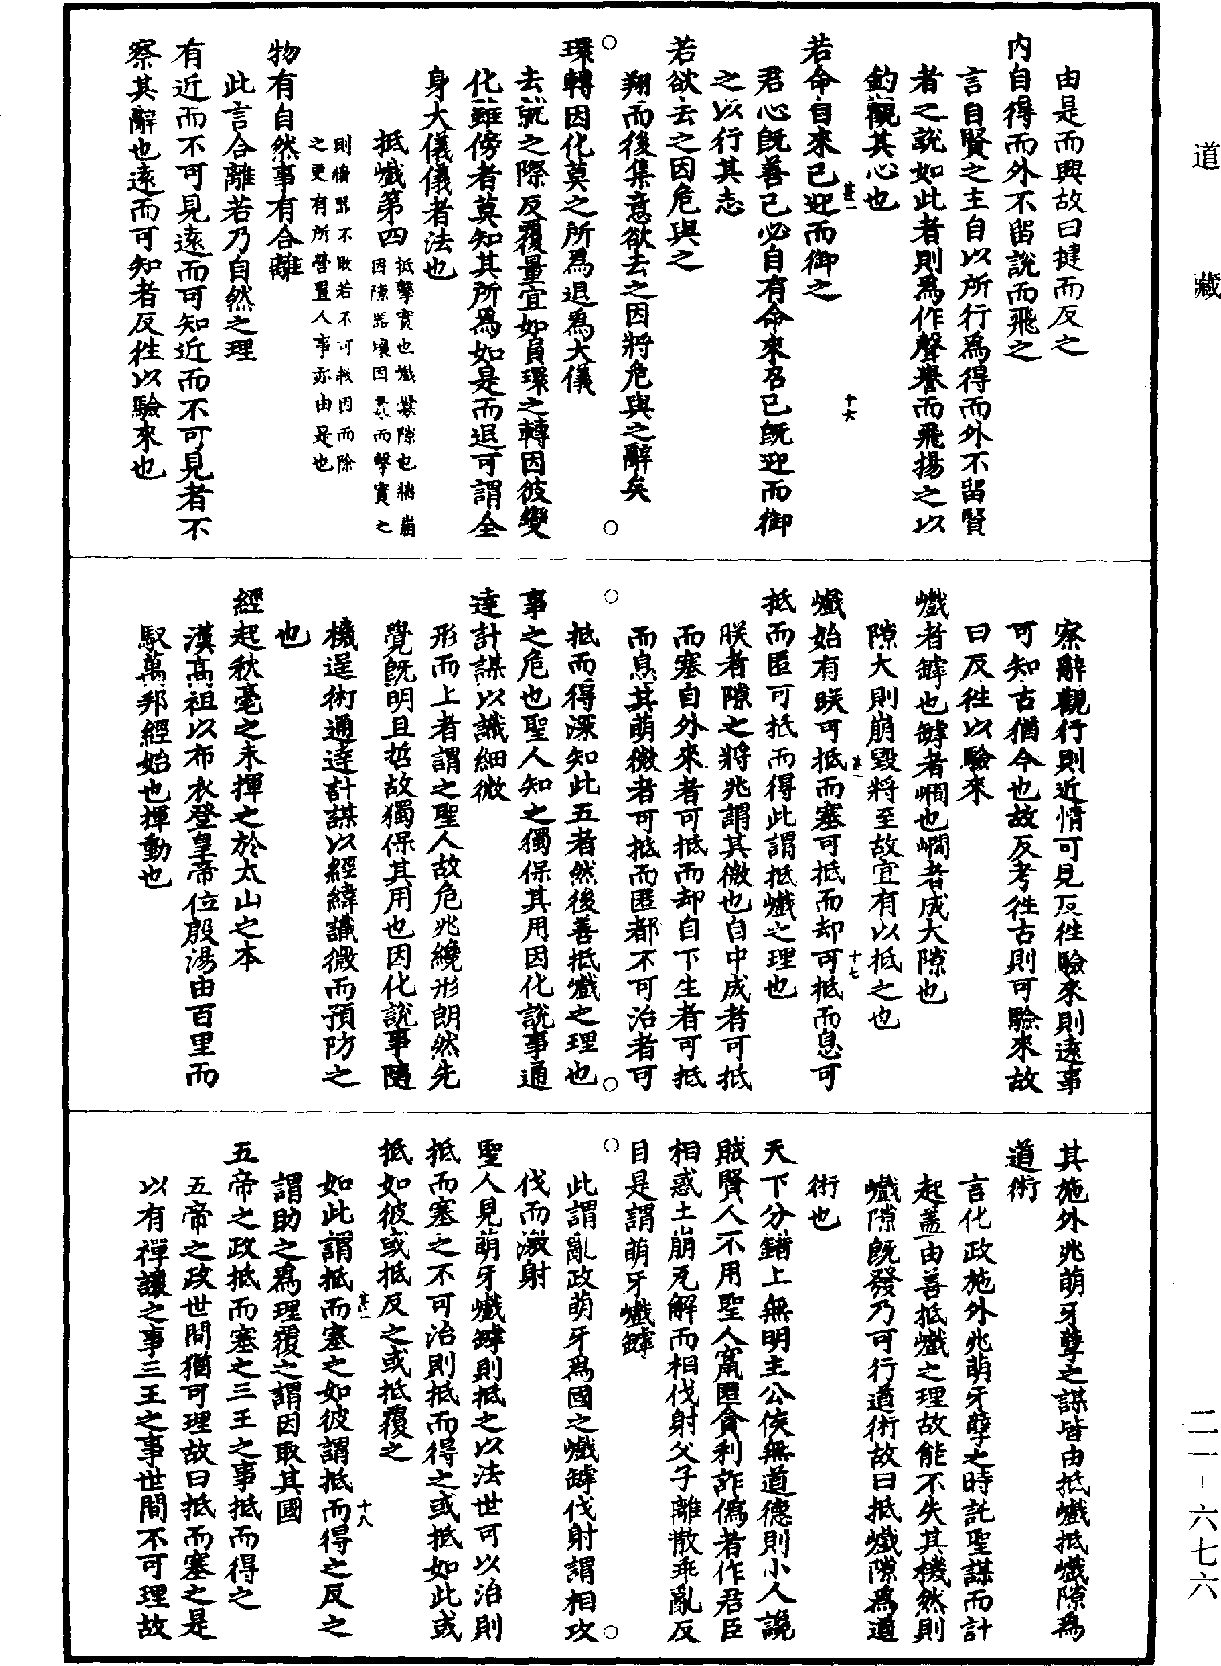 道藏
由是而興故曰揵而反之
内自得而外不留說而飛之
言自賢之主自以所行爲得而外不留賢
者之說如此者則爲作聲譽而飛揚之以
釣觀其心也
若命自來己迎而御之
甚一
十六
君心旣善己必自有命來召己旣迎而御
之以行其志
若欲去之因危與之
翔而後集意欲去之因將危與之辭矣
環轉因化莫之所爲退爲大儀
去就之際反覆量宜如負環之轉因彼變
化雖傍者莫知其所爲如是而退可謂全
身大儀儀者法也
抵巇第四
抵擊實也巇釁隙也牆崩
因隙器壞因釁而擊實之
則牆器不敗若不可救因而除
之更有所營置人事亦由是也
物有自然事有合離
此言合離若乃自然之理
有近而不可見遠而可知近而不可見者不
察其辭也遠而可知者反徃以驗來也
察辭觀行則近情可見反徃驗來則遠事
可知古猶今也故反考徃古則可驗來故
曰反徃以驗來
巇者罅也罅者㟅也㟅者成大隙也
隙大則崩毀將至故宜有以抵之也
巇始有朕可抵而塞可抵而却可抵而息可
甚一
十七
抵而匿可抵而得此謂抵巇之理也
朕者隙之將兆謂其微也自中成者可抵
而塞自外來者可抵而却自下生者可抵
而息其萌微者可抵而匿都不可治者可
抵而得深知此五者然後善抵巇之理也
事之危也聖人知之獨保其用因化說事通
達計謀以識細微
形而上者謂之聖人故危兆纔形朗然先
覺旣明且哲故獨保其用也因化說事隨
機逞術通達計謀以經緯識微而預防之
也
經起秋毫之末揮之於太山之本
漢高祖以布衣登皇帝位殷湯由百里而
馭萬邦經始也揮動也
其施外兆萌牙孽之謀皆由抵巇抵巇隙爲
道術
言化政施外兆萌牙孽之時託聖謀而計
起蓋由善抵巇之理故能不失其機然則
巇隙旣發乃可行道術故曰抵巇隙爲道
術也
天下分錯上無明主公侯無道德則小人讒
賊賢人不用聖人竄匿貪利詐僞者作君臣
相惑土崩瓦解而相伐射父子離散乖亂反
目是謂萌牙巇罅
此謂亂政萌牙爲國之巇罅伐射謂相攻
伐而激射
聖人見萌牙巇罅則抵之以法世可以治則
抵而塞之不可治則抵而得之或抵如此或
抵如彼或抵反之或抵覆之
甚一
十八
如此謂抵而塞之如彼謂抵而得之反之
謂助之爲理覆之謂因取其國
五帝之政抵而塞之三王之事抵而得之
五帝之政世間猶可理故曰抵而塞之是
以有禪讓之事三王之事世間不可理故
二一-六七六